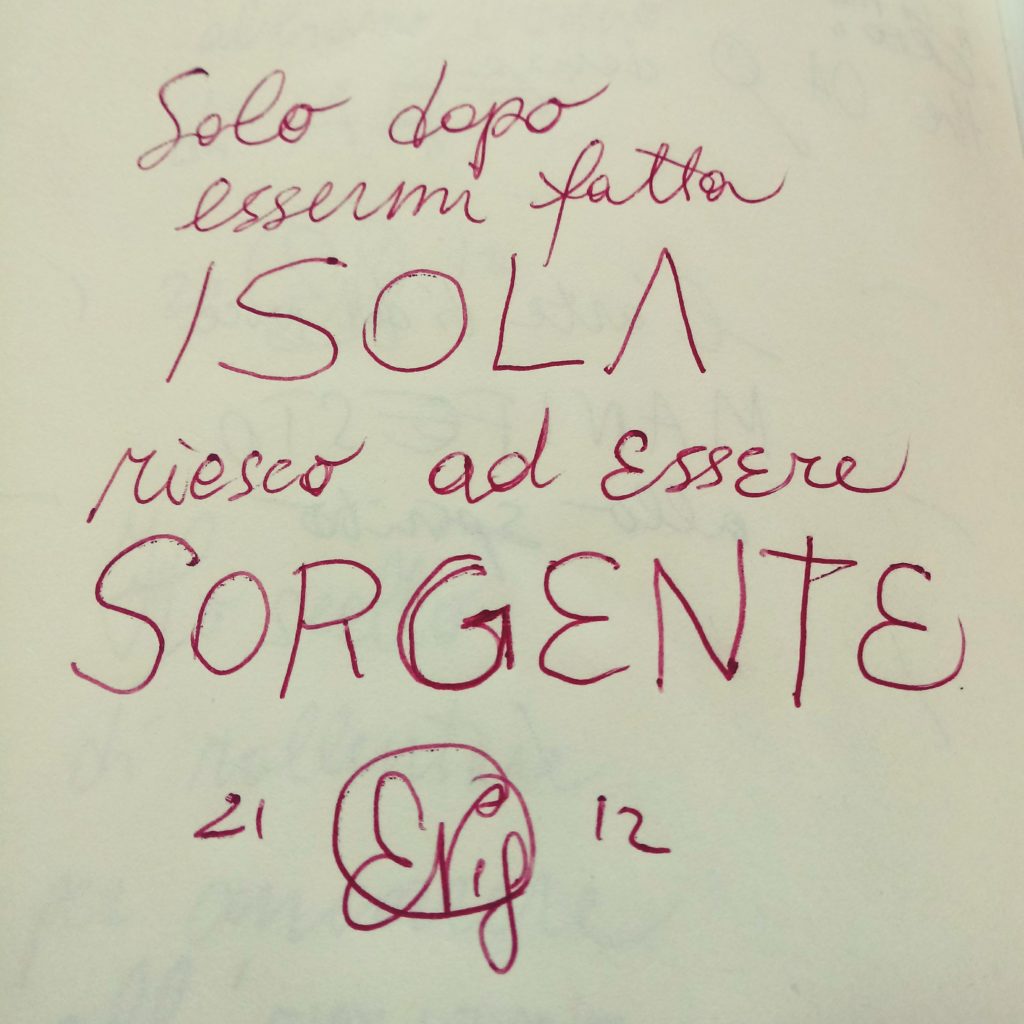 Solo dopo
essermi fatta
ISOLA
riesco ad essere
SORGENTE
21 12